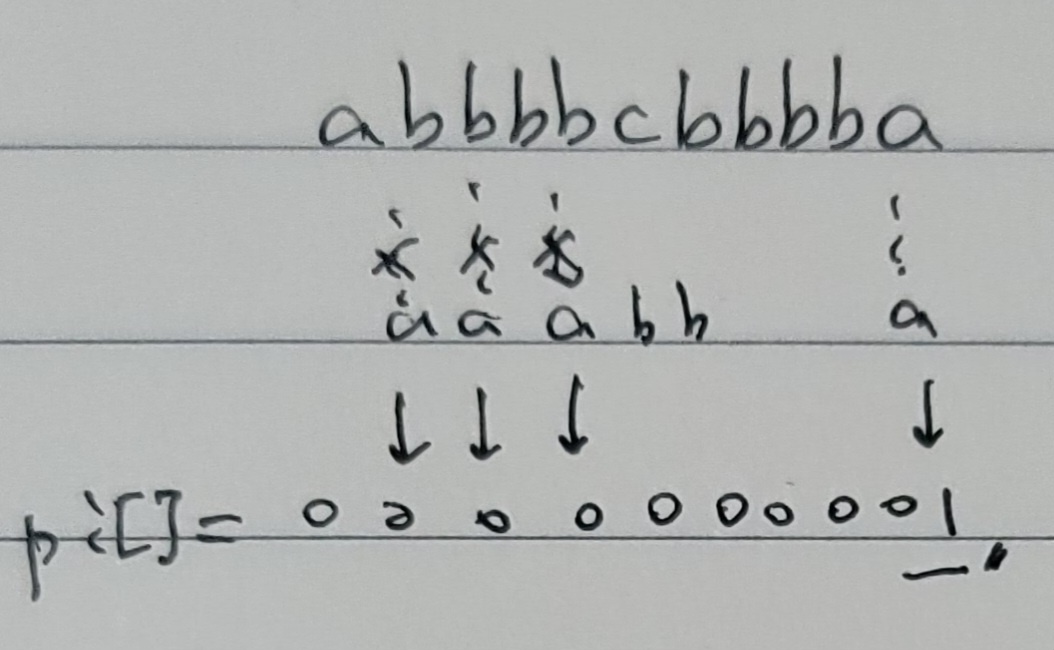 abbbbcbbbba
a a a b b a
↓ ↓ ↓ ↓
pi[] = 0 0 0 0 0 0 0 0 0 1